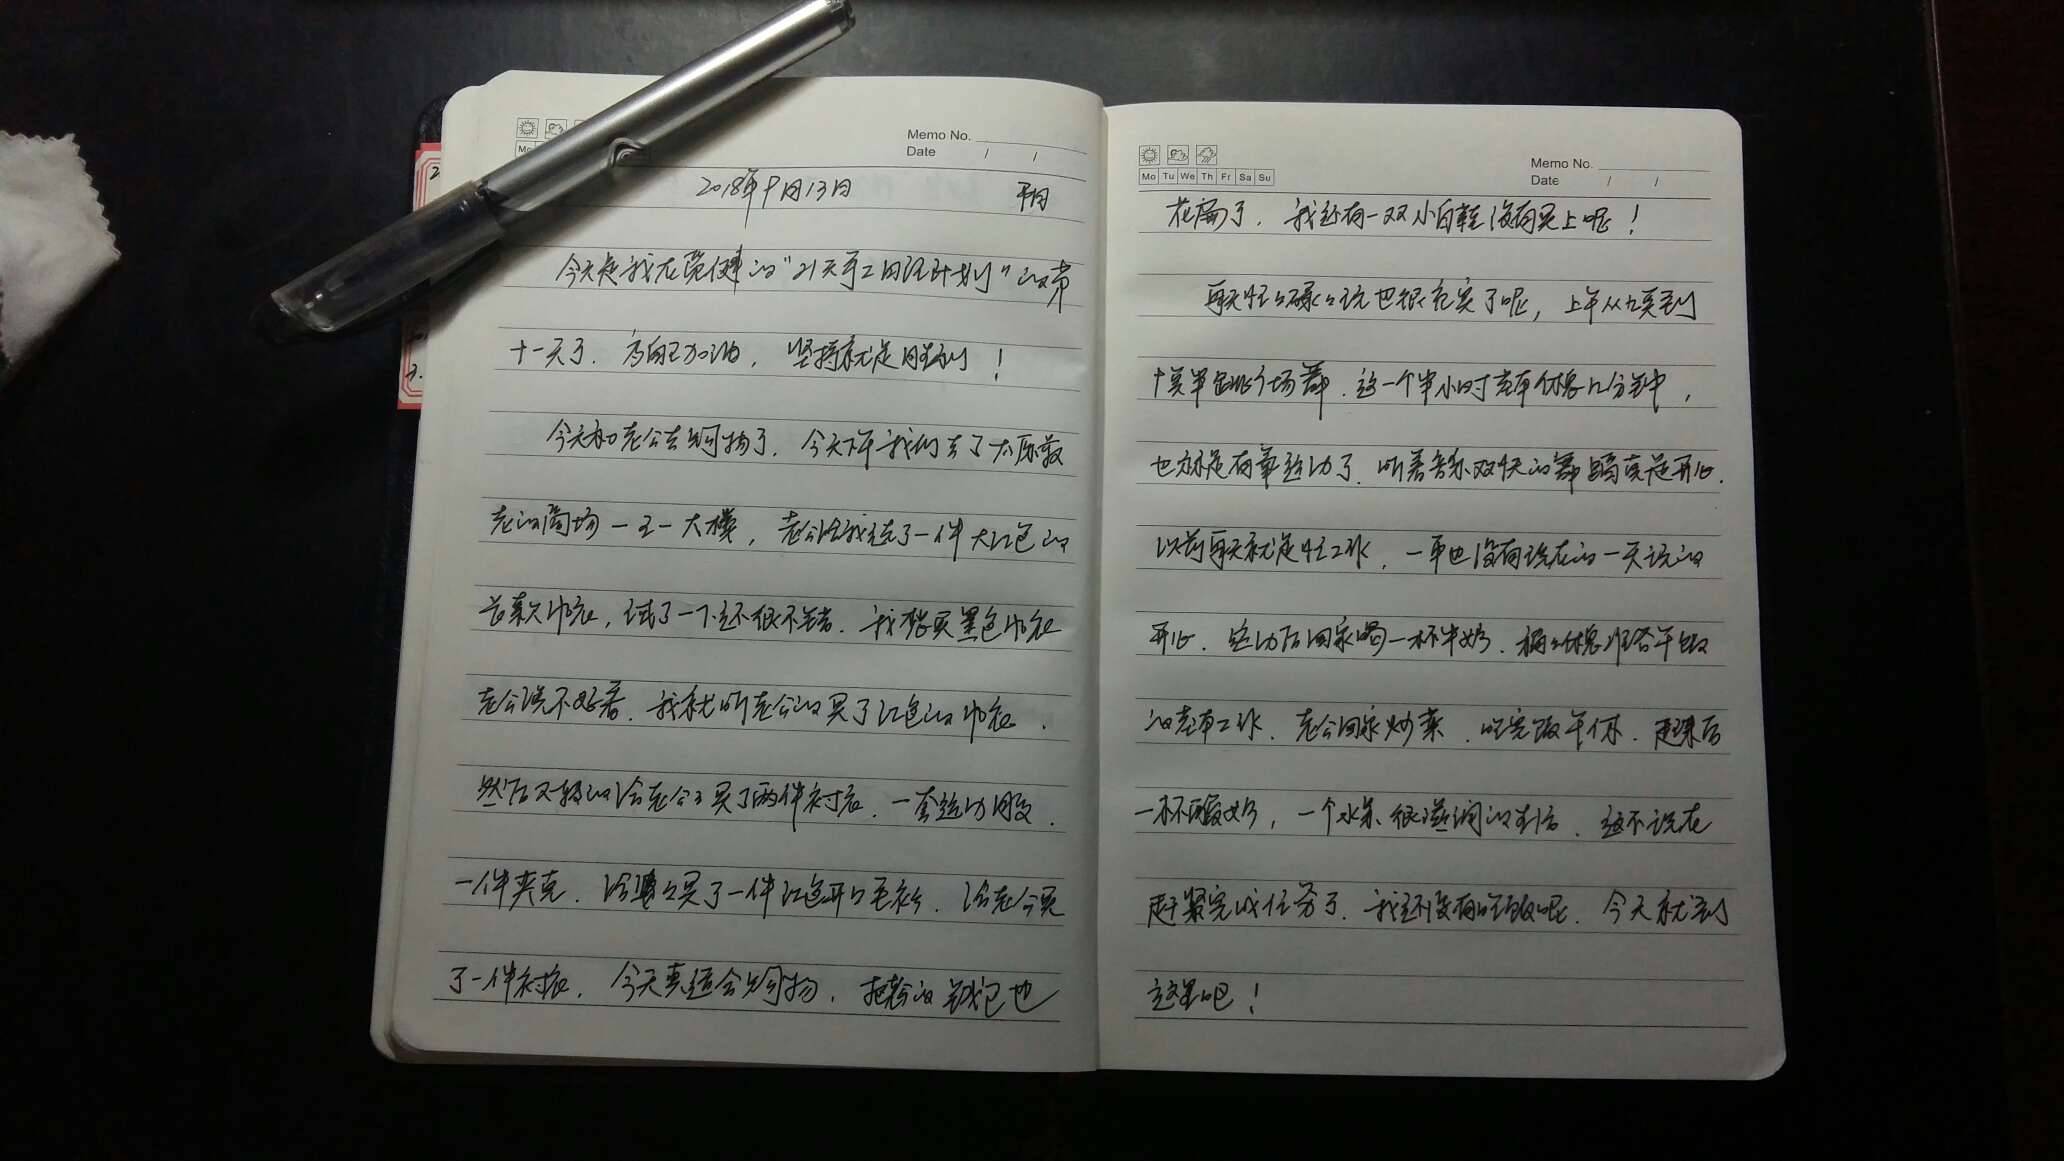 Memo No.
Date / /
2018年9月13日 晴
今天是我在 健的"21天手工 计划"的第
十一天了. 为自己加油, 坚持就是胜利!
今天和老公去购物了. 今天下午我们去了太原最
老的商场一五一大楼, 老公给我选了一件大红色的
长款 衣, 试了一下还很不错. 我想买黑色 衣
老公说不好看. 我就听老公的买了红色的 衣.
然后又 的给老公买了两件衬衣. 一套运动服.
一件夹克. 给 买了一件红色开口毛衫. 给老公买
了一件衬衣. 今天真适合购物, 把老公的钱包也
Mo Tu We Th Fr Sa Su
Memo No.
Date / /
花扁了. 我还有一双小白鞋没有买上呢!
每天忙忙碌碌的玩也很充实了呢, 上午从九点到
十点半 广场舞. 这一个半小时 休息几分钟,
也就是有氧运动了. 听着音乐 的舞蹈真是开心.
以前每天就是忙工作, 一年也没有现在的一天玩的
开心. 运动后回家喝一杯牛奶. 稍稍休息准备午饭
的 工作. 老公回家炒菜. 吃完饭午休. 起来后
一杯酸奶, 一个水果 很滋润的生活. 这不现在
赶紧完成任务了. 我还没有吃饭呢. 今天就到
这里吧!